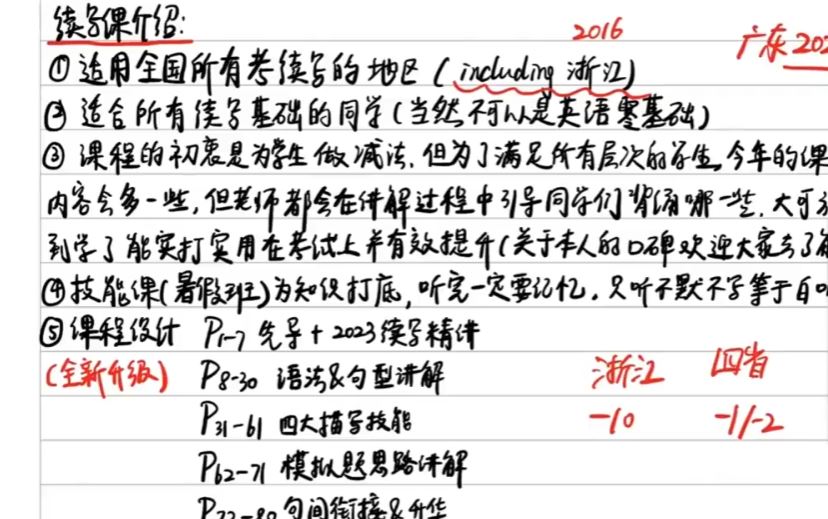 续写课介绍: 2016 广东 202
① 适用全国所有考续写的地区 (including 浙江)
② 适合所有续写基础的同学(当然不可以是英语零基础)
③ 课程的初衷是为学生做减法,但为了满足所有层次的学生,今年的课
内容会多一些,但老师都会在讲解过程中引导同学们背诵哪一些,大可
到学了能实打实用在考试上并有效提升(关于本人的口碑欢迎大家去了解
④ 技能课(暑假班)为知识打底,听完一定要记忆,只听不默不写等于白听
⑤ 课程设计 P1-7 先导+2023续写精讲
(全新升级) P8-30 语法&句型讲解 浙江 四省
P31-61 四大描写技能 -10 -1/-2
P62-71 模拟题思路讲解
P72-80 句间衔接&升华